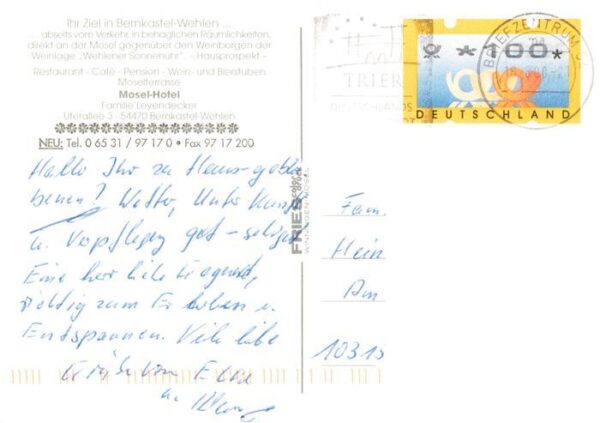 Ihr Ziel in Bernkastel-Wehlen ...
... abseits vom Verkehr, in behaglichen Räumlichkeiten,
direkt an der Mosel gegenüber den Weinbergen der
Weinlage „Wehlener Sonnenuhr“. – Hausprospekt –
Restaurant - Café - Pension - Wein- und Bierstuben
Moselterrasse
Mosel-Hotel
Familie Leyendecker
Uferallee 3 · 54470 Bernkastel-Wehlen
NEU: Tel. 0 65 31 / 97 17 0 • Fax 97 17 200
Hallo Ihr zu Hause-geblie
benen! Wetter, Unterkunft
u. Verpflegung gut –
Eine herrliche Gegend,
richtig zum Erholen u.
Entspannen. Viele liebe
Grüße von
u.
FRIES
Fam.
Hein
Am
10315
* 100 *
DEUTSCHLAND
BRIEFZENTRUM
TRIER
DEUTSCHLANDS